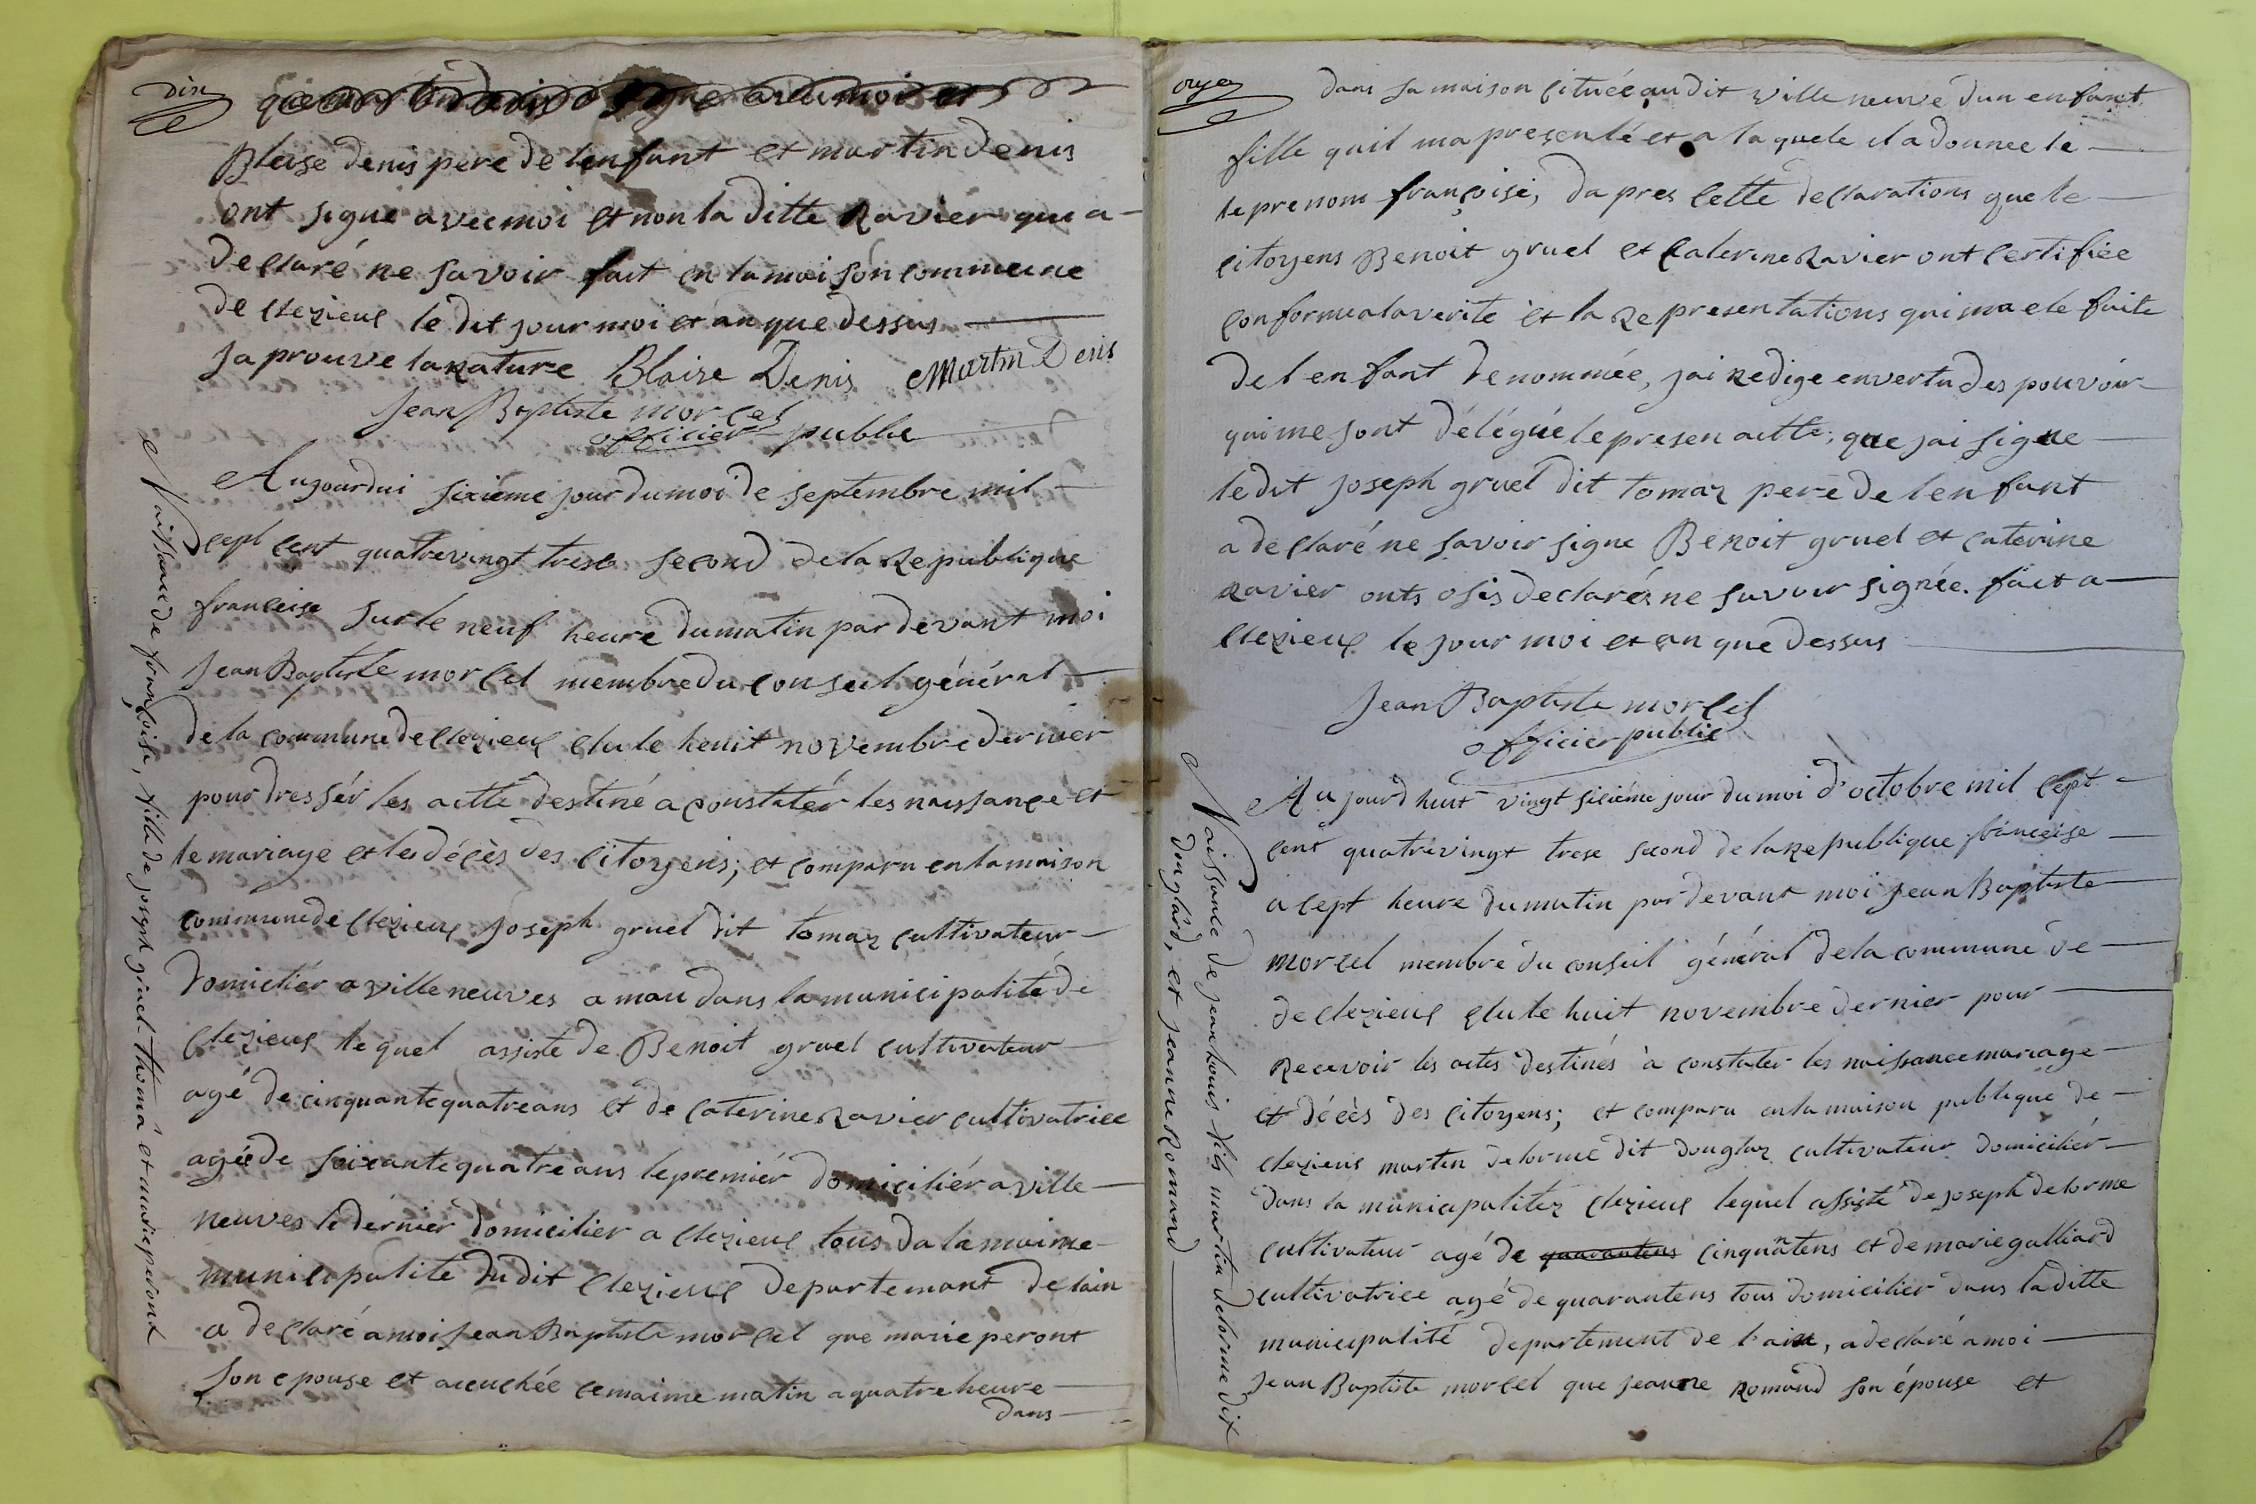 dix
Blaise denis pere de lenfant et martin denis
ont signe avec moi et non la ditte Ravier qui a
declaré ne savoir fait en la maison commeune
de Clezieuξ le dit jour moi et an que dessus
Japrouve la Rature Blaise Denis Martin Denis
Jean Baptiste morcel
officier public
Naissance de françoise, fille de joseph gruel-thoma et marie peront
Aujourdui sixiéme jour du moi de septembre mil
cept cent quatrevingt trese second de la Republique
franceise sur le neuf heure dumatin par devant moi
Jean Baptiste morcel membre du conseil général
de la commune de clezieux elu le heuit novembre dernier
pour dressér les actte destiné a constatér les naissance et
le mariage et les décès des citoyens; et comparu en la maison
commune de Clezieux joseph gruel dit tomaz cultivateur
domicilier a villeneuves a mau dans la municipalité de
Clezieux le quel assiste de Benoit gruel cultivateur
agé de cinquantequatre ans et de caterine Ravier cultivatrice
agée de soixantequatre ans le premiér domiciliér a ville
neuves le dérnier domicilier a Clezieux tous da la maime
municipalité du dit Clezieux departemant de lain
a declaré a moi Jean Baptiste morcel que marie peront
son epouse et acuchée cemaime matin a quatre heure
dans
onze
dans sa maison cituée au dit ville neuve dun enfant
fille quil ma presenlé et a la quele il a donnee le
le prenom françoise, da pres cette declarations que le
citoyens Benoit gruel et Caterine Ravier ont certifiée
conforme a la verité et la Representations qui ma ete faite
de l enfant denommée, jai Redige en vertu des pouvoir
qui me sont délégué le presen actte, que jai signe
le dit joseph gruel dit tomaz pere de l enfant
a declaré ne savoir signe Benoit gruel et caterine
Ravier onts osis declarés ne savoir signée. fait a
Clezieux le jour moi et an que dessus
Jean Baptiste morcel
officier public
Naissance de jean louis fils martin delorme dit
duglard, et jeanne Romand
Aujourd huit vingt sixiéme jour du moi d'octobre mil cept
cent quatrevingt trese second de la Republique franceise
a cept heure dumatin par devant moi Jean Baptiste
morcel membre du conseil général de la commune de
de Clezieux elu le huit novembre dernier pour
Recevoir les actes destinés à constater les naissance mariage
et décès des citoyens; et comparu en la maison publique de
clezieux martin delorme dit douglaz cultivateur domiciliér
dans la municipalitez Clezieux lequel assisté de joseph delorme
cultivateur agé de quarantens cinquantens et de marie galliard
cultivatrice agé de quarantens tous domicilier dans la ditte
municipalité departement de l'ain, a declaré a moi
Jean Baptiste morcel que jeanne Romand son épouse et